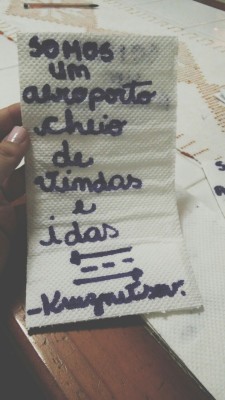 SOMOS
um
aeroporto
cheio
de
vindas
e
idas